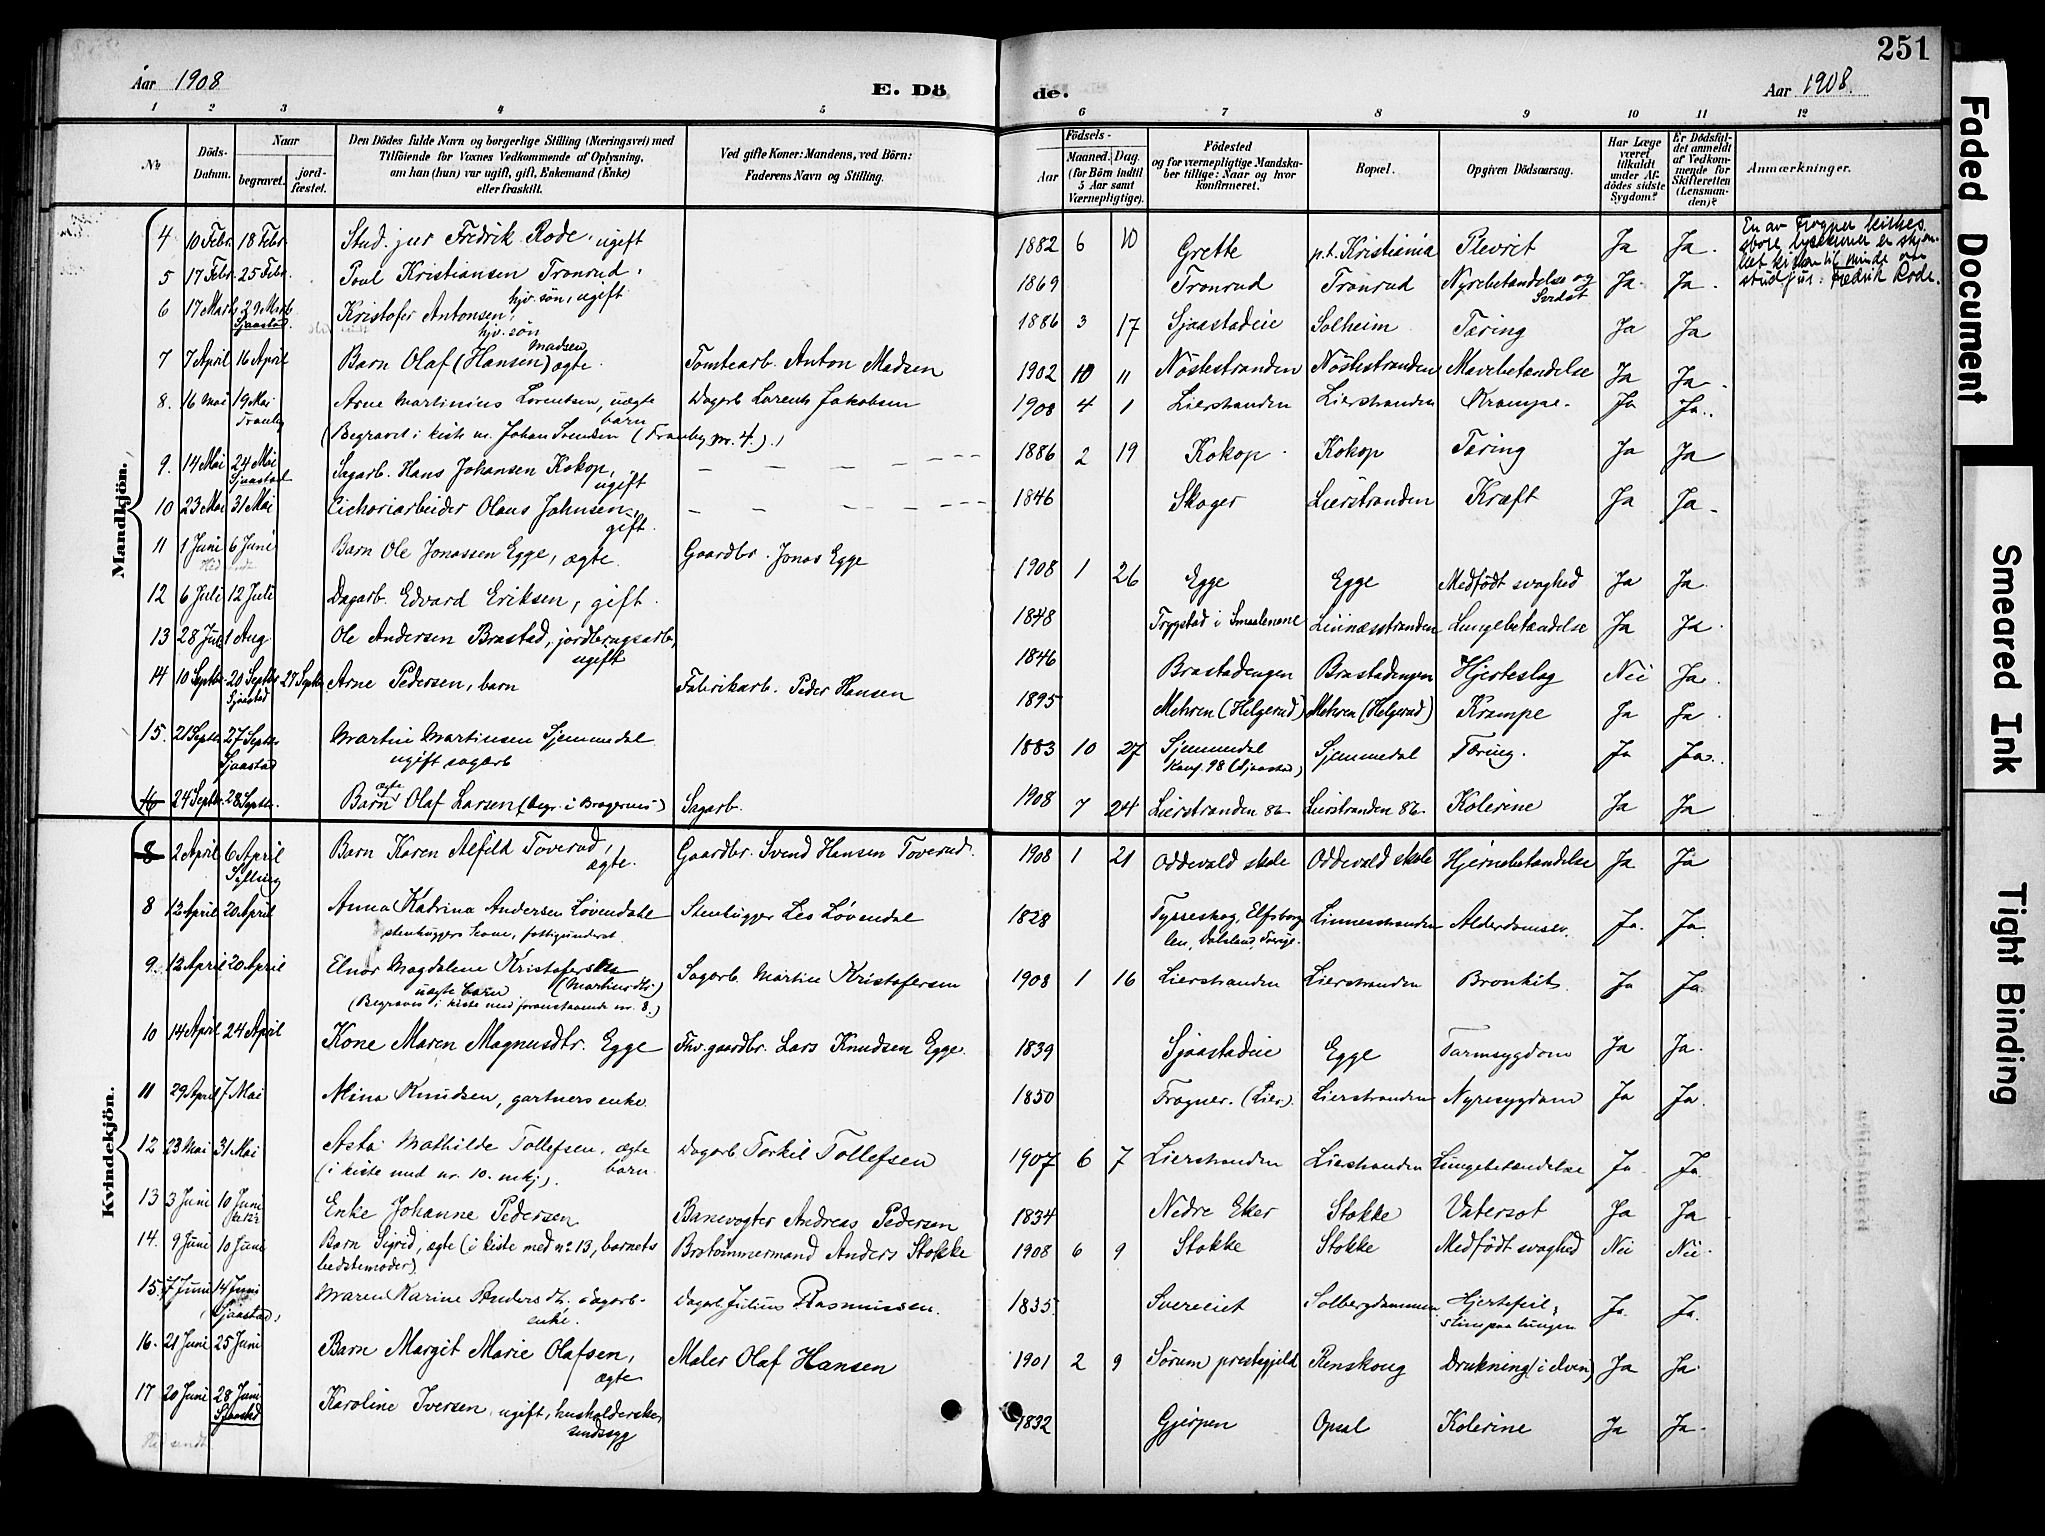 251
Aar 1908
E. Dö
de.
Aar 1908.
1 2 3 4 5 6 7 8 9 10 11 12
No
Döds-
Datum.
Naar
begravet.
jord-
fæstet.
Den Dödes fulde Navn og borgerlige Stilling (Næringsvei) med
Tilföiende for Voxnes Vedkommende af Oplysning,
om han (hun) var ugift, gift, Enkemand (Enke)
eller fraskilt.
Ved gifte Koner: Mandens, ved Börn:
Faderens Navn og Stilling.
Födsels-
Aar
Maaned. Dag.
(for Börn indtil
5 Aar samt
Værnepligtige).
Födested
og for værnepligtige Mandska-
ber tillige: Naar og hvor
konfirmeret.
Bopæl.
Opgiven Dödsaarsag.
Har Læge
været
tilkaldt
under Af-
dödes sidste
Sygdom?
Er Dödsfal-
det anmeldt
af Vedkom-
mende for
Skifteretten
(Lensman-
den)?
Anmærkninger.
Mandkjön.
4 10 Febr. 18 Febr. Stud. jur Fredrik Rode, ugift 1882 6 10 Grette p.t. Kristiania Plevrit Ja Ja.
En av Frogner kirkes
store lysekroner er skjæn-
ket kirken til minde om
stud jur: Fredrik Rode.
5 17 Febr. 25 Febr. Poul Kristiansen Tronrud, hjv. søn, ugift 1869 Tronrud Tronrud Nyrebetændelse og Ja Ja.
6 17 Marts 29 Marts Sjaastad. Kristofer Antonsen, hjv. søn 1886 3 17 Sjaastadeie Solheim Tæring Ja Ja
7 7 April 16 April Barn Olaf (Hansen) Madsen ægte. Tomtearb. Anton Madsen 1902 10 11 Nöstestranden Nöstestranden Mavebetændelse Ja Ja.
8. 16 Mai 19 Mai Tranby Arne Martinius Lorentsen, uægte barn Dagarb Lorents Jakobsen 1908 4 1 Lierstranden Lierstranden Krampe. Ja Ja.
(Begravet i kiste m. Johan Svendsen (Tranby nr. 4).)
9. 14 Mai 24 Mai Sjaastad Sagarb. Hans Johansen Kokop, ugift 1886 2 19 Kokop Kokop Tæring Ja Ja
10 23 Mai 31 Mai Cichoriarbeider Olaus Johnsen, gift. 1846 Skoger Lierstranden Kræft Ja Ja.
11 1 Juni 6 Juni Barn Ole Jonassen Egge, ægte. Gaardbr. Jonas Egge 1908 1 26 Egge Egge Medfödt svaghed Ja Ja.
12 6 Juli 12 Juli Dagarb. Edvard Eriksen, gift. 1848 Trygstad i Smaalenene Linnæsstranden Lungebetændelse Ja Ja.
13 28 Juli 1 Aug Ole Andersen Brastad, jordbrugsarb, ugift 1846 Brastadengen Brastadengen Hjerteslag Nei Ja.
14 10 Septbr 20 Septbr Sjaastad 27 Septbr Arne Pedersen, barn Fabrikarb. Peder Hansen 1895 Mehren (Helgerud) Mehren (Helgerud) Krampe Ja Ja
15. 21 Septbr 27 Septbr Sjaastad Martin Martinsen Sjemmedal ugift sagarb 1883 10 27 Sjemmedal Konf. 98 (Sjaastad) Sjemmedal Tæring. Ja Ja.
16 24 Septbr. 28 Septbr. Barn ægte Olaf Larsen (begr. i Bragernes) Sagarb. 1908 7 24 Lierstranden 86 Lierstranden 86 Kolerine Ja Ja
Kvindekjön.
8 2 April 6 April Sylling Barn Karen Alfild Toverud, ægte. Gaardbr. Svend Hansen Toverud. 1908 1 21 Oddevald skole Oddevald skole Hjernebetændelse Ja Ja
8 12 April 20 April Anna Katrina Andersen Lövendahl Stenhugger Les Lövendal 1828 Linnesstranden Alderdomssv. Ja. Ja
stenhuggers kone, fattigunderst.
9. 12 April 20 April Elnor Magdalene Kristofersen (Martinsdtr.) uægte barn Sagarb Martin Kristofersen 1908 1 16 Lierstranden Lierstranden Bronkit Ja Ja.
(Begravet i kiste med foranstaaende nr. 8.)
10 14 April 24 April Kone Maren Magnusdtr. Egge Fhv. gaardbr. Lars Knudsen Egge. 1839 Sjaastadeie Egge Tarmsygdom Ja Ja.
11 29 April 7 Mai Mina Knudsen, gartners enke. 1850 Frogner. (Lier). Lierstranden Nyresygdom Ja Ja.
12 23 Mai 31 Mai Asta Mathilde Tollefsen, ægte barn. Dagarb Torkil Tollefsen 1907 6 7 Lierstranden Lierstranden Lungebetændelse Ja. Ja.
(i kiste med nr. 10. mkj).
13 3 Juni 10 Juni Enke Johanne Pedersen Banevogter Andreas Pedersen 1834 Nedre Eker Stokke Vatersot Ja Ja
14. 9 Juni 10 Juni Barn Sigrid, ægte (i kiste med nr 13, barnets bedstemoder) Brotömmermand Anders Stokke 1908 6 9 Stokke Stokke Medfödt svaghed Nei Nei.
15. 7 Juni 14 Juni Sjaastad, Maren Karine Andersdtr. dagarb. enke. Dagarb Julius Rasmussen. 1835 Svereiet Solbergdammen Hjertefeil, Ja. Ja.
16. 21 Juni 25 Juni Barn Margit Marie Olafsen, ægte Maler Olaf Hansen 1901 2 9 Sørum prestegjeld Renskoug Drukning (i elven) Ja Ja
17 20 Juni 28 Juni Sjaastad Karoline Iversen, ugift, husholderske, sindssyg 1832 Gjerpen Opsal Kolerine Ja Ja.
Faded Document
Smeared Ink
Tight Binding